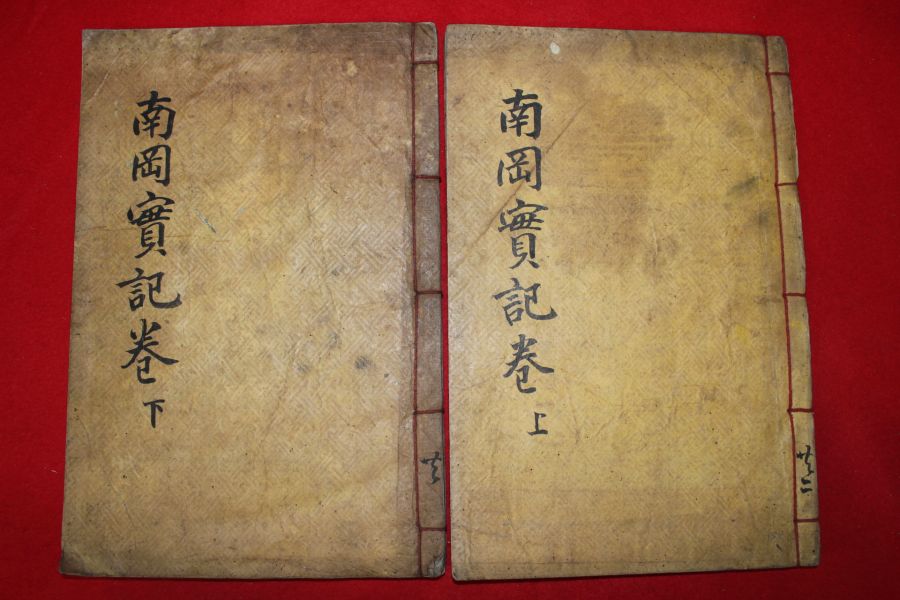 南岡實記卷上
共二
南岡實記卷下
共